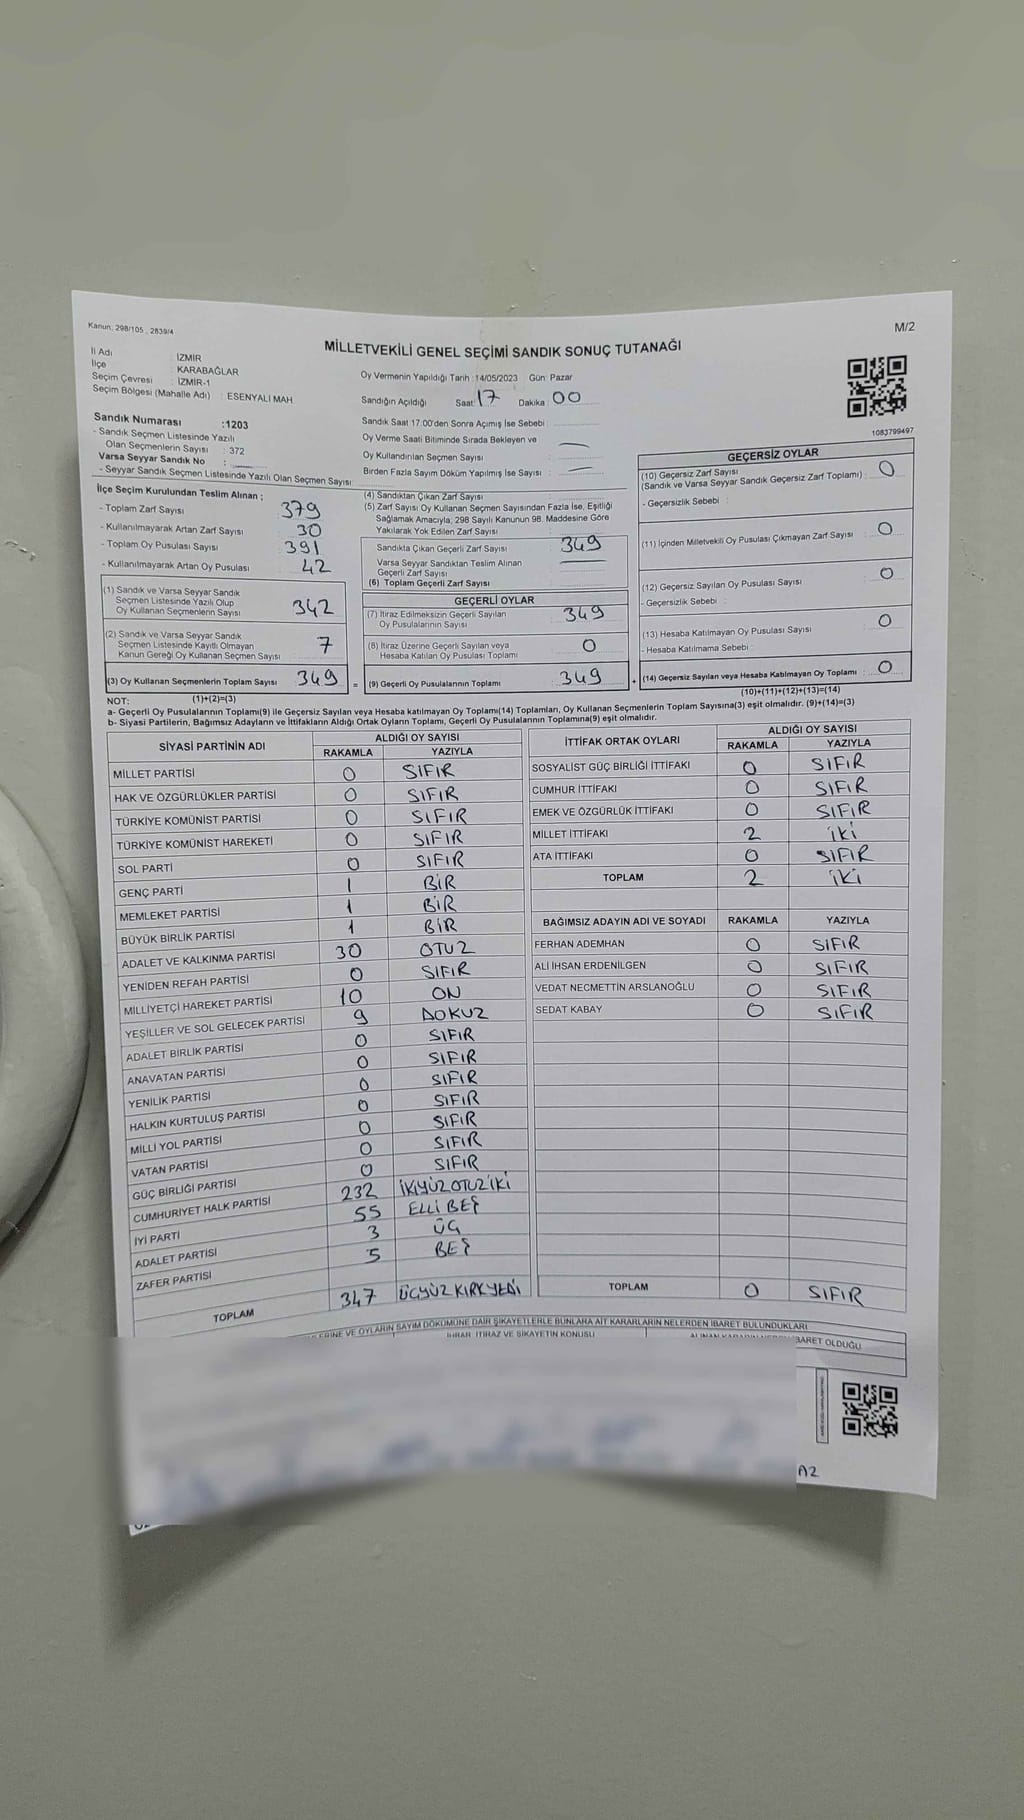 Kanun; 298/105 , 2839/4
M/2
MİLLETVEKİLİ GENEL SEÇİMİ SANDIK SONUÇ TUTANAĞI
İl Adı : İZMİR
İlçe : KARABAĞLAR
Seçim Çevresi : İZMİR-1
Seçim Bölgesi (Mahalle Adı) : ESENYALI MAH
Oy Vermenin Yapıldığı Tarih :14/05/2023 Gün: Pazar
Sandığın Açıldığı Saat: 17 Dakika: 00
Sandık Numarası :1203
- Sandık Seçmen Listesinde Yazılı
Olan Seçmenlerin Sayısı : 372
Varsa Seyyar Sandık No :
- Seyyar Sandık Seçmen Listesinde Yazılı Olan Seçmen Sayısı:
Sandık Saat 17.00'den Sonra Açımış İse Sebebi :
Oy Verme Saati Bitiminde Sırada Bekleyen ve
Oy Kullandırılan Seçmen Sayısı : —
Birden Fazla Sayım Döküm Yapılmış İse Sayısı : —
1083799497
İlçe Seçim Kurulundan Teslim Alınan ;
- Toplam Zarf Sayısı : 379
- Kullanılmayarak Artan Zarf Sayısı : 30
- Toplam Oy Pusulası Sayısı : 391
- Kullanılmayarak Artan Oy Pusulası : 42
(1) Sandık ve Varsa Seyyar Sandık
Seçmen Listesinde Yazılı Olup
Oy Kullanan Seçmenlerin Sayısı 342
(2) Sandık ve Varsa Seyyar Sandık
Seçmen Listesinde Kayıtlı Olmayan
Kanun Gereği Oy Kullanan Seçmen Sayısı 7
(3) Oy Kullanan Seçmenlerin Toplam Sayısı 349 =
(4) Sandıktan Çıkan Zarf Sayısı :
(5) Zarf Sayısı Oy Kullanan Seçmen Sayısından Fazla İse, Eşitliği
Sağlamak Amacıyla, 298 Sayılı Kanunun 98. Maddesine Göre
Yakılarak Yok Edilen Zarf Sayısı :
Sandıkta Çıkan Geçerli Zarf Sayısı : 349
Varsa Seyyar Sandıktan Teslim Alınan
Geçerli Zarf Sayısı : —
(6) Toplam Geçerli Zarf Sayısı :
GEÇERLİ OYLAR
(7) İtiraz Edilmeksizin Geçerli Sayılan
Oy Pusulalarının Sayısı : 349
(8) İtiraz Üzerine Geçerli Sayılan veya
Hesaba Katılan Oy Pusulası Toplamı : 0
(9) Geçerli Oy Pusulalarının Toplamı : 349 +
GEÇERSİZ OYLAR
(10) Geçersiz Zarf Sayısı
(Sandık ve Varsa Seyyar Sandık Geçersiz Zarf Toplamı) : 0
- Geçersizlik Sebebi :
(11) İçinden Milletvekili Oy Pusulası Çıkmayan Zarf Sayısı : 0
(12) Geçersiz Sayılan Oy Pusulası Sayısı : 0
- Geçersizlik Sebebi :
(13) Hesaba Katılmayan Oy Pusulası Sayısı : 0
- Hesaba Katılmama Sebebi :
(14) Geçersiz Sayılan veya Hesaba Katılmayan Oy Toplamı : 0
NOT: (1)+(2)=(3)
(10)+(11)+(12)+(13)=(14)
a- Geçerli Oy Pusulalarının Toplamı(9) ile Geçersiz Sayılan veya Hesaba katılmayan Oy Toplamı(14) Toplamları, Oy Kullanan Seçmenlerin Toplam Sayısına(3) eşit olmalıdır. (9)+(14)=(3)
b- Siyasi Partilerin, Bağımsız Adayların ve İttifakların Aldığı Ortak Oyların Toplamı, Geçerli Oy Pusulalarının Toplamına(9) eşit olmalıdır.
SİYASİ PARTİNİN ADI ALDIĞI OY SAYISI
RAKAMLA YAZIYLA
MİLLET PARTİSİ 0 SIFIR
HAK VE ÖZGÜRLÜKLER PARTİSİ 0 SIFIR
TÜRKİYE KOMÜNİST PARTİSİ 0 SIFIR
TÜRKİYE KOMÜNİST HAREKETİ 0 SIFIR
SOL PARTİ 0 SIFIR
GENÇ PARTİ 1 BİR
MEMLEKET PARTİSİ 1 BİR
BÜYÜK BİRLİK PARTİSİ 1 BİR
ADALET VE KALKINMA PARTİSİ 30 OTUZ
YENİDEN REFAH PARTİSİ 0 SIFIR
MİLLİYETÇİ HAREKET PARTİSİ 10 ON
YEŞİLLER VE SOL GELECEK PARTİSİ 9 DOKUZ
ADALET BİRLİK PARTİSİ 0 SIFIR
ANAVATAN PARTİSİ 0 SIFIR
YENİLİK PARTİSİ 0 SIFIR
HALKIN KURTULUŞ PARTİSİ 0 SIFIR
MİLLİ YOL PARTİSİ 0 SIFIR
VATAN PARTİSİ 0 SIFIR
GÜÇ BİRLİĞİ PARTİSİ 0 SIFIR
CUMHURİYET HALK PARTİSİ 232 İKİYÜZOTUZİKİ
İYİ PARTİ 55 ELLİ BEŞ
ADALET PARTİSİ 3 ÜÇ
ZAFER PARTİSİ 5 BEŞ
TOPLAM 347 ÜÇYÜZ KIRKYEDİ
İTTİFAK ORTAK OYLARI ALDIĞI OY SAYISI
RAKAMLA YAZIYLA
SOSYALİST GÜÇ BİRLİĞİ İTTİFAKI 0 SIFIR
CUMHUR İTTİFAKI 0 SIFIR
EMEK VE ÖZGÜRLÜK İTTİFAKI 0 SIFIR
MİLLET İTTİFAKI 2 İKİ
ATA İTTİFAKI 0 SIFIR
TOPLAM 2 İKİ
BAĞIMSIZ ADAYIN ADI VE SOYADI RAKAMLA YAZIYLA
FERHAN ADEMHAN 0 SIFIR
ALİ İHSAN ERDENİLGEN 0 SIFIR
VEDAT NECMETTİN ARSLANOĞLU 0 SIFIR
SEDAT KABAY 0 SIFIR
TOPLAM 0 SIFIR
VE OYLARIN SAYIM DÖKÜMÜNE DAİR ŞİKAYETLERLE BUNLARA AİT KARARLARIN NELERDEN İBARET BULUNDUKLARI
İHBAR, İTİRAZ VE ŞİKAYETİN KONUSU
İBARET OLDUĞU
A2